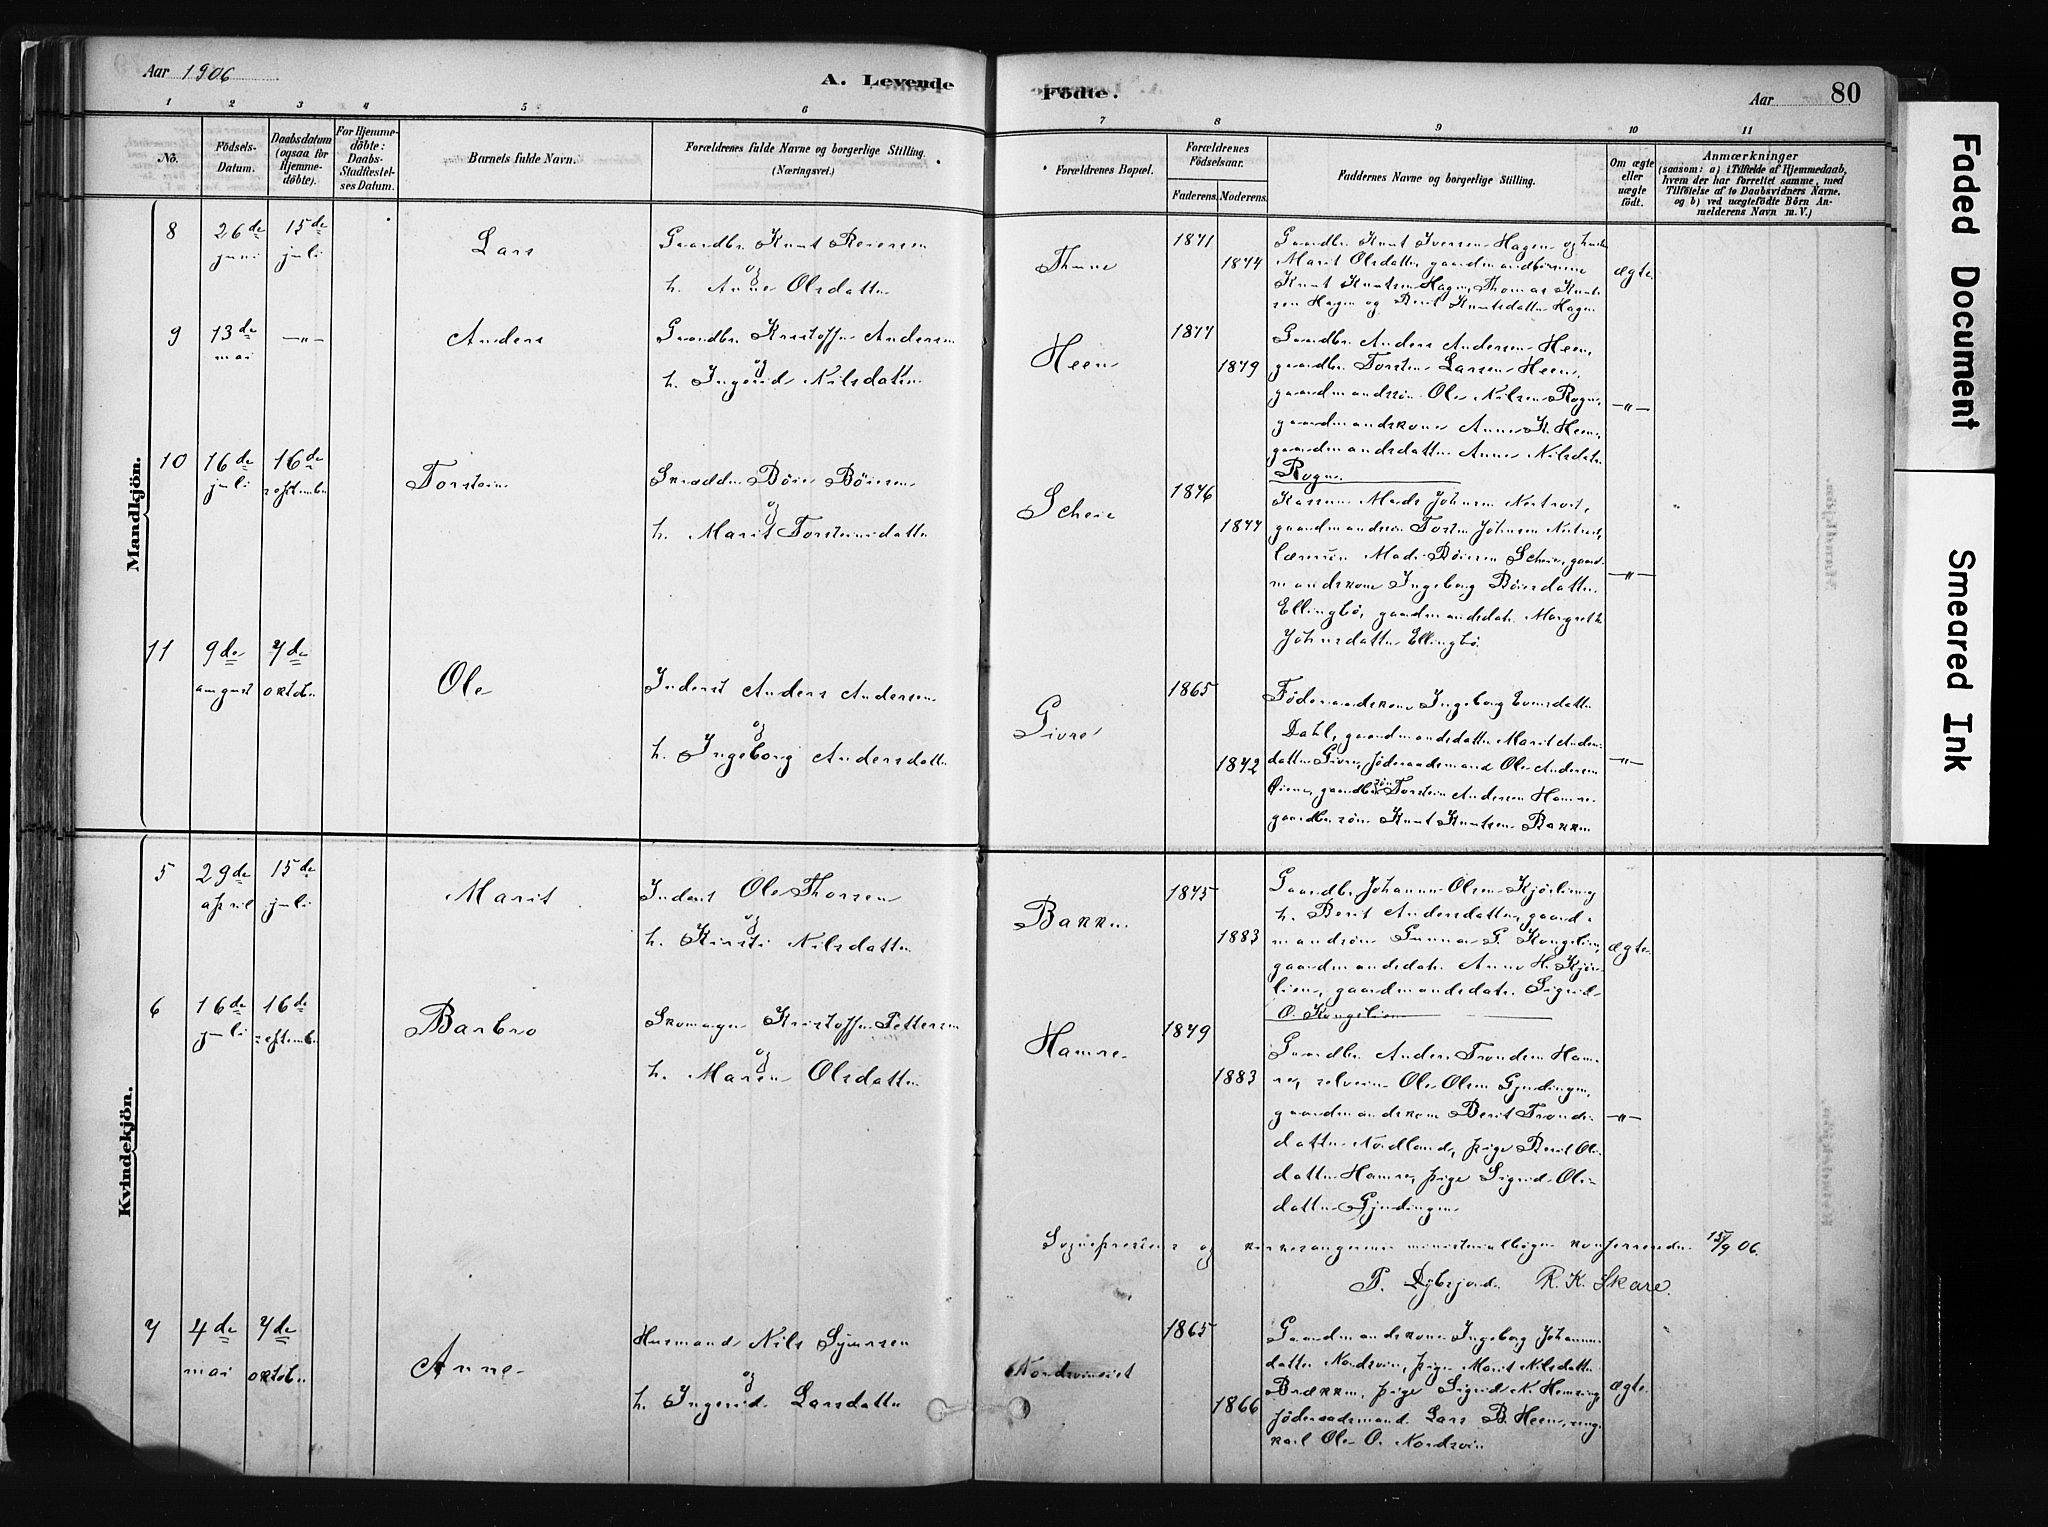 Aar 1906
A. Levende
Födte.
Aar
80
1 2 3 4 5 6 7 8 9 10 11
No.
Födsels-
Datum.
Daabsdatum
(ogsaa for
Hjemme-
döbte).
For Hjemme-
döbte:
Daabs-
Stadfæstel-
ses Datum.
Barnets fulde Navn.
Forældrenes fulde Navne og borgerlige Stilling.
(Næringsvei.)
Forældrenes Bopæl.
Forældrenes
Födselsaar.
Faderens.
Moderens.
Faddernes Navne og borgerlige Stilling.
Om ægte
eller
uægte
födt.
Anmærkninger
(saasom: a) i Tilfælde af Hjemmedaab,
hvem der har forrettet samme, med
Tilföielse af to Daabsvidners Navne,
og b) ved uægtefödte Börn An-
melderens Navn m. V.)
Mandkjön.
8
26de
juni
15de
juli
Lars
Gaardbr. Knut
og
h. Anne Olsdatter
Thune
1871
1874
Gaardbr. Knut Iversen Hagen og hustru
Marit Olsdatter, gaardmandbörnene
Knut Knutsen Hagen, Thomas Knut-
sen Hagen og Berit Knutsdatter Hagen
ægte
9
13de
mai
—"—
Anders
Gaardbr. Kristoffer Andersen
og
h. Ingerid Nilsdatter
Heen
1877
1879
Gaardbr. Anders Andersen Heen,
gaardbr. Torsten Larsen Heen,
gaardmandssön Ole Nilsen Rogne,
gaardmandskone Anne K. Heen,
gaardmandsdatter Anne Nilsdatter
Rogne.
—"—
10
16de
juli
16de
september
Torstein
Skrædder Böie Böiesen
og
h. Marit Torsteinsdatter
Scheie
1876
1877
Mads Johnsen
gaardmandssön Torsten Johnsen
Mads Böiesen Scheie, gaard-
mandskone Ingeborg Böiesdatter
Ellingbö, gaardmandsdatr. Margrethe
Johnsdatter Ellingbö.
—"—
11
9de
august
7de
oktober
Ole
Inderst Anders Andersen
og
h. Ingeborg Andersdatter
Givre
1865
1872
Föderaadskone Ingeborg
Dahl, gaardmandsdatter Marit Anders-
datter Givre, föderaadsmand Ole Andersen
Öiene, gaardbrsön Torstein Andersen Hamre
gaardbrsön Knut Knutsen Bakken
—"—
Kvindekjön.
5
29de
april
15de
juli
Marit
Inderst Ole Thorsen
og
h. Kirsti Nilsdatter
Bakken
1875
1883
Gaardbr. Johannes Olsen Kjörlien og
h. Berit Andersdatter, gaard-
mandssön Gunnar G. Kongelien,
gaardmandsdatr. Anne H. Kjör-
lien, gaardmandsdatr. Sigrid
O. Kongelien
ægte
6
16de
juli
16de
september
Barbro
Skomager Kristoffer Pettersen
og
h. Maren Olsdatter
Hamre
1879
1883
Gaardbr. Anders Trondsen Ham-
re, selveier Ole Olsen Gjendingen,
gaardmandskone Berit Tronds-
datter Nordland, pige Berit Ols-
datter Hamre, pige Sigrid Ols-
datter Gjendingen
—"—
Sognepresten og kirkesangerens ministerialböger konfereret. 15/9 06.
R. K. Skare.
7
4de
mai
7de
oktober
Anne
Husmand Nils Syversen
og
h. Ingerid Larsdatter
1865
1866
Gaardmandskone Ingeborg Johannes-
datter Nordsvein, pige Marit Nilsdatter
Brækken, pige Sigrid N. Hemsing,
föderaadsmand Lars B. Heen, ung-
karl Ole O. Nordsvein
ægte
Faded Document
Smeared Ink